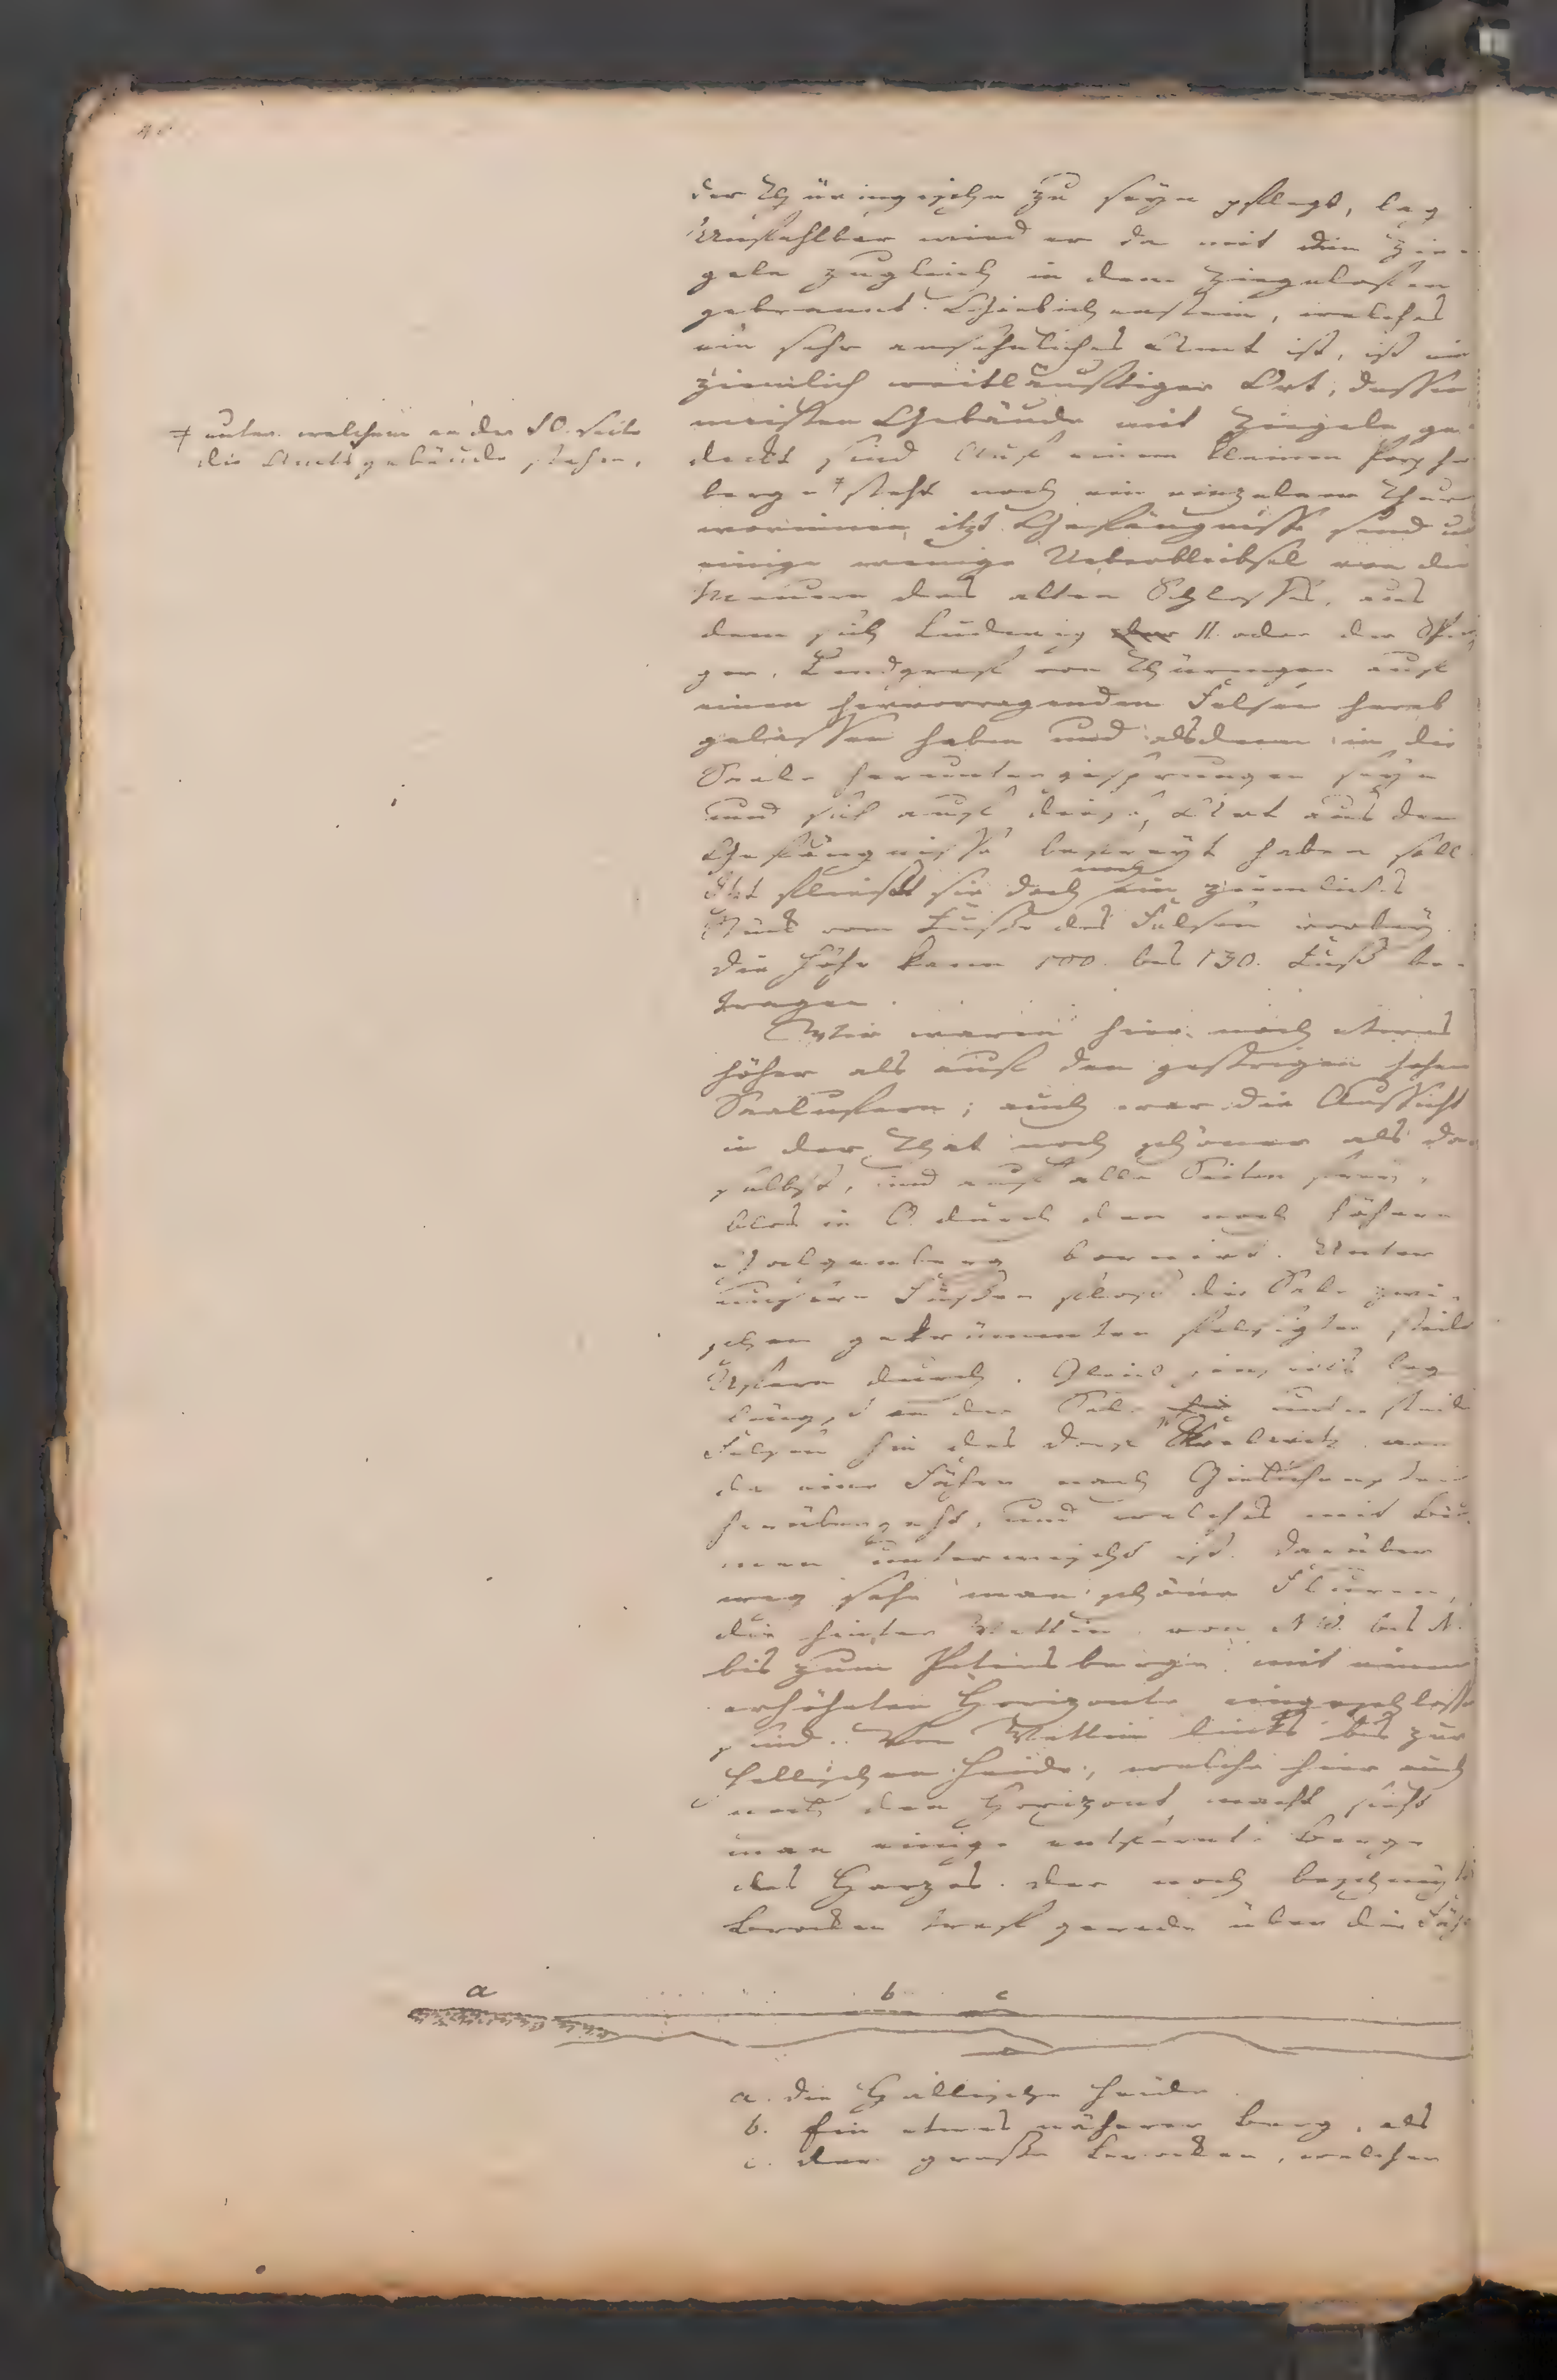 der Thüringische zu seyn pflegt, lag
Unfehlbar wird er da mit den Zie-
geln zugleich in dem Ziegelofen
gebrannt. Giebichenstein, welches
ein sehr ansehnliches Amt ist, ist ein
ziemlich weitläuftiger Ort, dessen
meisten Gebäude mit Ziegeln ge-
deckt sind Auf einem kleinen Porphir
berge ǂ steht noch ein einzelner Thurm
worinnen itzt Gefängnisse sind u
einige wenige Ueberbleibsel von den
Mauern des alten Schlosses, aus
dem sich Ludewig der II. oder der Sprin
ger, Landgraf von Thüringen auf
einen hervorragenden Felsen herab
gelassen haben und alsdenn in die
Saale heruntergesprungen seyn
und sich auf diese Art aus dem
Gefängnisse befreyt haben soll.
Itzt fliesst sie doch noch ein ziemliches
Stück vom Fusse des Felsen vorbey.
die Höhe kann 100. bis 130. Fuss be-
tragen.
Wir waren hier noch etwas
höher als auf den gestrigen hohen
Saalufern; auch war die Aussicht
in der That noch schöner als da-
selbst, und auf alle Seiten frey,
blos in O. durch den noch höhern
Galgenberg bornirt. Unter
unsern Füssen floss die Sale zwi-
schen gekrümmten felsigten steilen
Ufern durch. Gleich jenseits lag
längst an der Sale hin unter steilen
Felsen hin das Dorf Kröllwitz von
da eine Fähre nach Giebichenstein
herübergeht, und welches mit Bäu-
men untermischt ist. Darüber
weg sahe man schöne Fluren,
die hinter Wettin von NW. bis N.
bis zum Petersberge mit einem
erhöhten Horizonte eingeschlossen
sind. Von Wettin links bis zur
hallischen Heide, welche hier auch
noch den Horizont macht sieht
man einige entfernte Berge
des Harzes. Der noch beschneyte
Brocken traf gerade über die Fäh
ǂ unter welchem an der SO. Seite
die Amtsgebäude stehen.
a b c
a. die Hallische Heide.
b. Ein etwas näherer Berg, als
c. der grosse Brocken, welcher